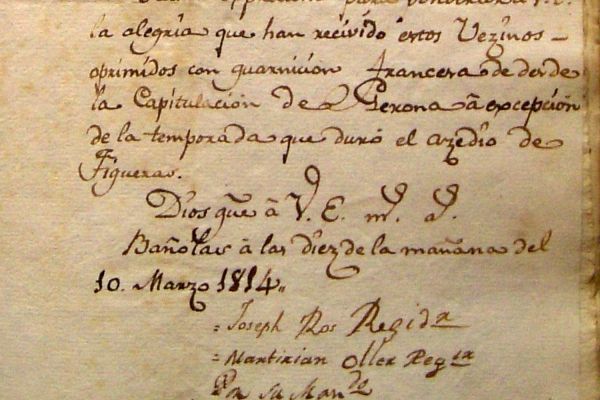 para
la alegria que han recivido estos Vezinos
oprimidos con guarnicion francesa desde
la Capitulación de Gerona à excepción
de la temporada que duró el azedio de
Figueras.
Dios gue à V. E. ms. as.
Bañolas à las diez de la mañana del
10. Marzo 1814,,
= Joseph Ros Regidr
= Martirian Oller Regor
Por su Mando